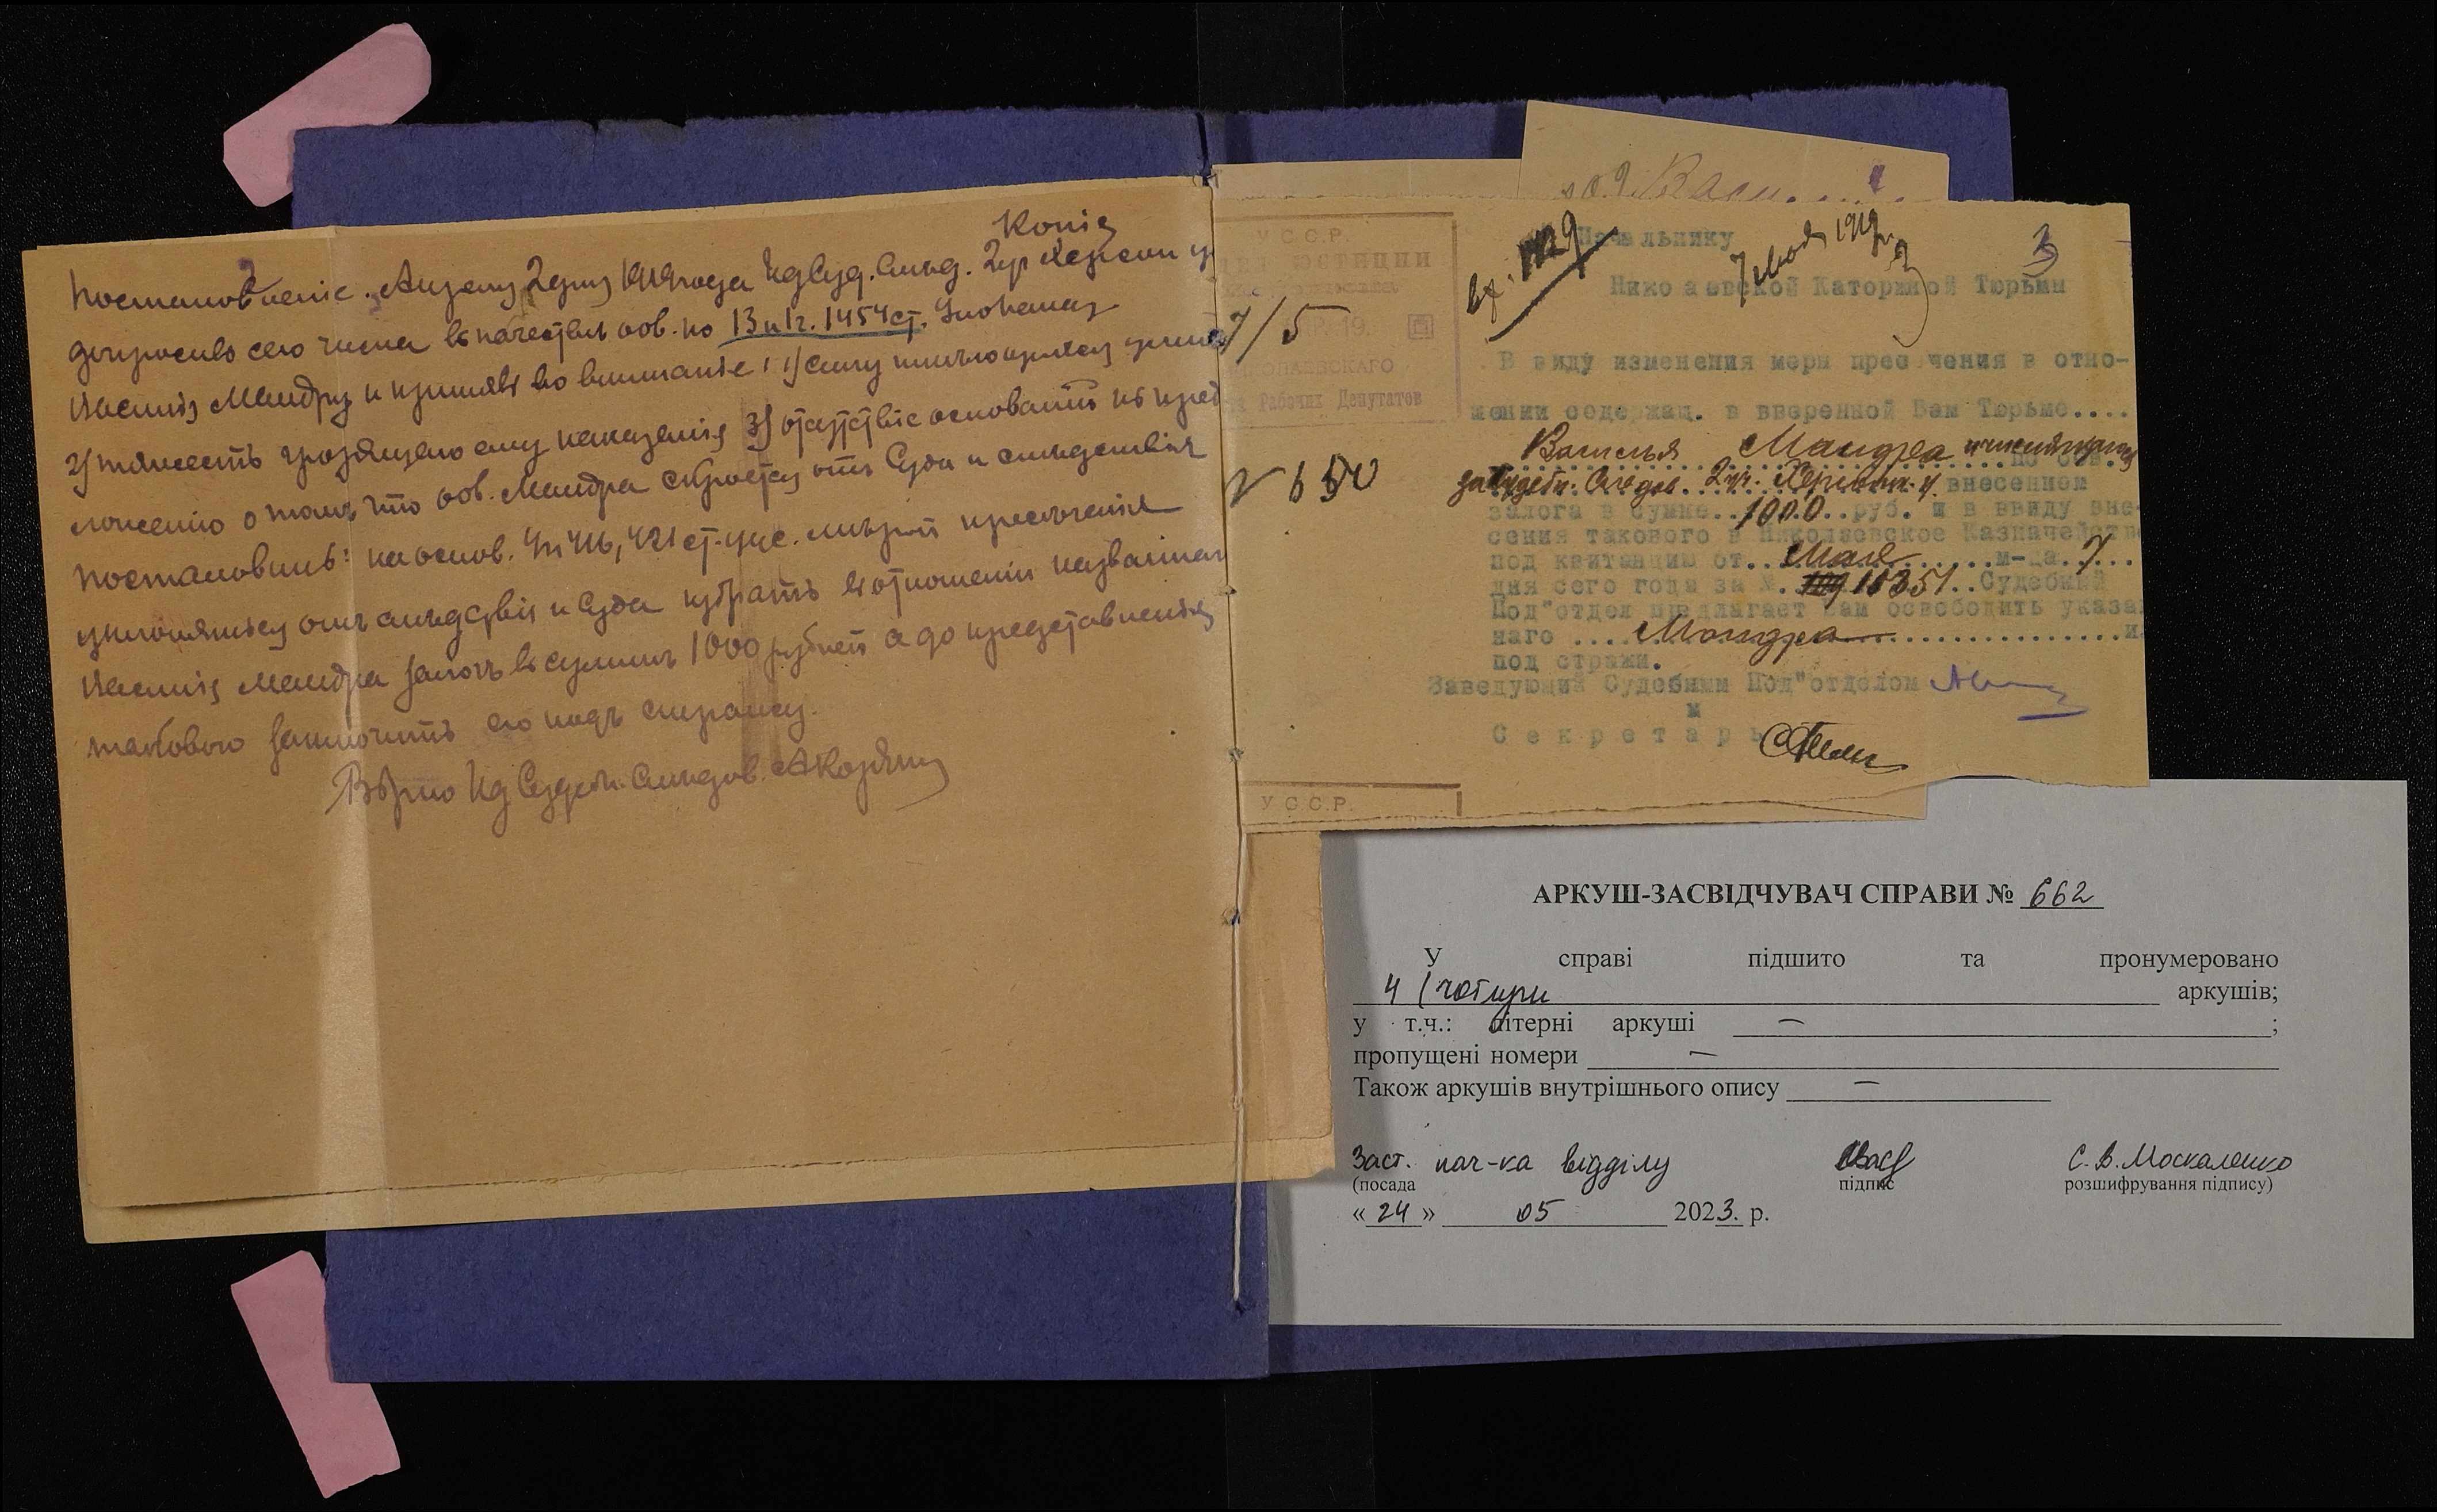 Копія
Постановленіе. Апреля 2 дня 1919 года Ид Суд. Слѣд. 2 уч Херсон у
допросивъ сего числа въ качествѣ обв. по 13 и 1 ч. 1454 ст.
Василія Мандру и принявъ во вниманіе: 1)
2) тяжесть грозящаго ему наказанія 3) отсутствіе основаній къ пред
ложенію о томъ что обв. Мандра скроется отъ Суда и слѣдствія
постановилъ: на основ. 416, 421 ст. уус. мѣрой пресѣченія
уклоняться отъ слѣдствія и Суда избрать въ отношеніи названнаго
Василія Мандра залогъ въ суммѣ 1000 рублей а до представленія
такового заключить его подъ стражу.
Вѣрно Ид Судебн. Слѣдов.
3
У С С.Р.
ЮСТИЦИИ
7/5
19.
КОЛАЕВСКАГО
Рабочих Депутатов
N 650
Вх. 1729
7 мая 1919 г.
Начальнику
Николаевской Каторжной Тюрьмы
В виду изменения меры пресечения в отно-
шении содержащ. в вверенной Вам Тюрьме....
Василья Мандра
за Судебн. Следов. 2 уч. Херсонск. у. внесением
залога в сумме..1000..руб. и в ввиду вне-
сения такового в Николаевское Казначейство
под квитанцию от..Мая......м-ца.7...
дня сего года за №. 10351..Судебный
Под"отдел предлагает Вам освободить указан
наго ....Мандра.................
под стражи.
Заведующий Судебным Под"отделом
и
Секретарь
У С С.Р.
АРКУШ-ЗАСВІДЧУВАЧ СПРАВИ № 662
У справі підшито та пронумеровано
4 (чотири аркушів;
у т.ч.: літерні аркуші — ;
пропущені номери —
Також аркушів внутрішнього опису —
Заст. нач-ка відділу С. В. Москаленко
(посада підпис розшифрування підпису)
« 24 » 05 2023. р.